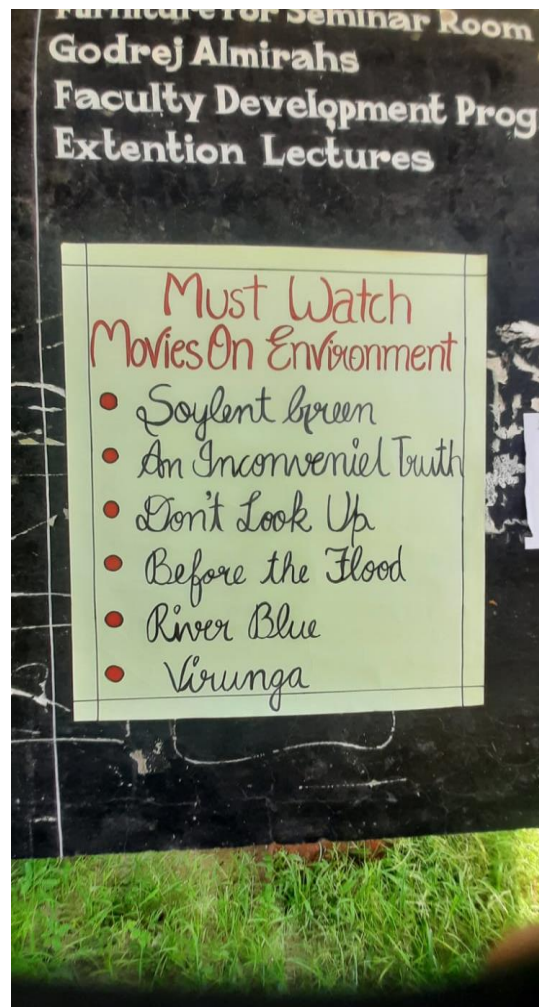 Furniture For Seminar Room
Godrej Almirahs
Faculty Development Prog
Extention Lectures
Must Watch
Movies On Environment
Soylent Green
An Inconveniel Truth
Don't Look Up
Before the Flood
River Blue
Virunga